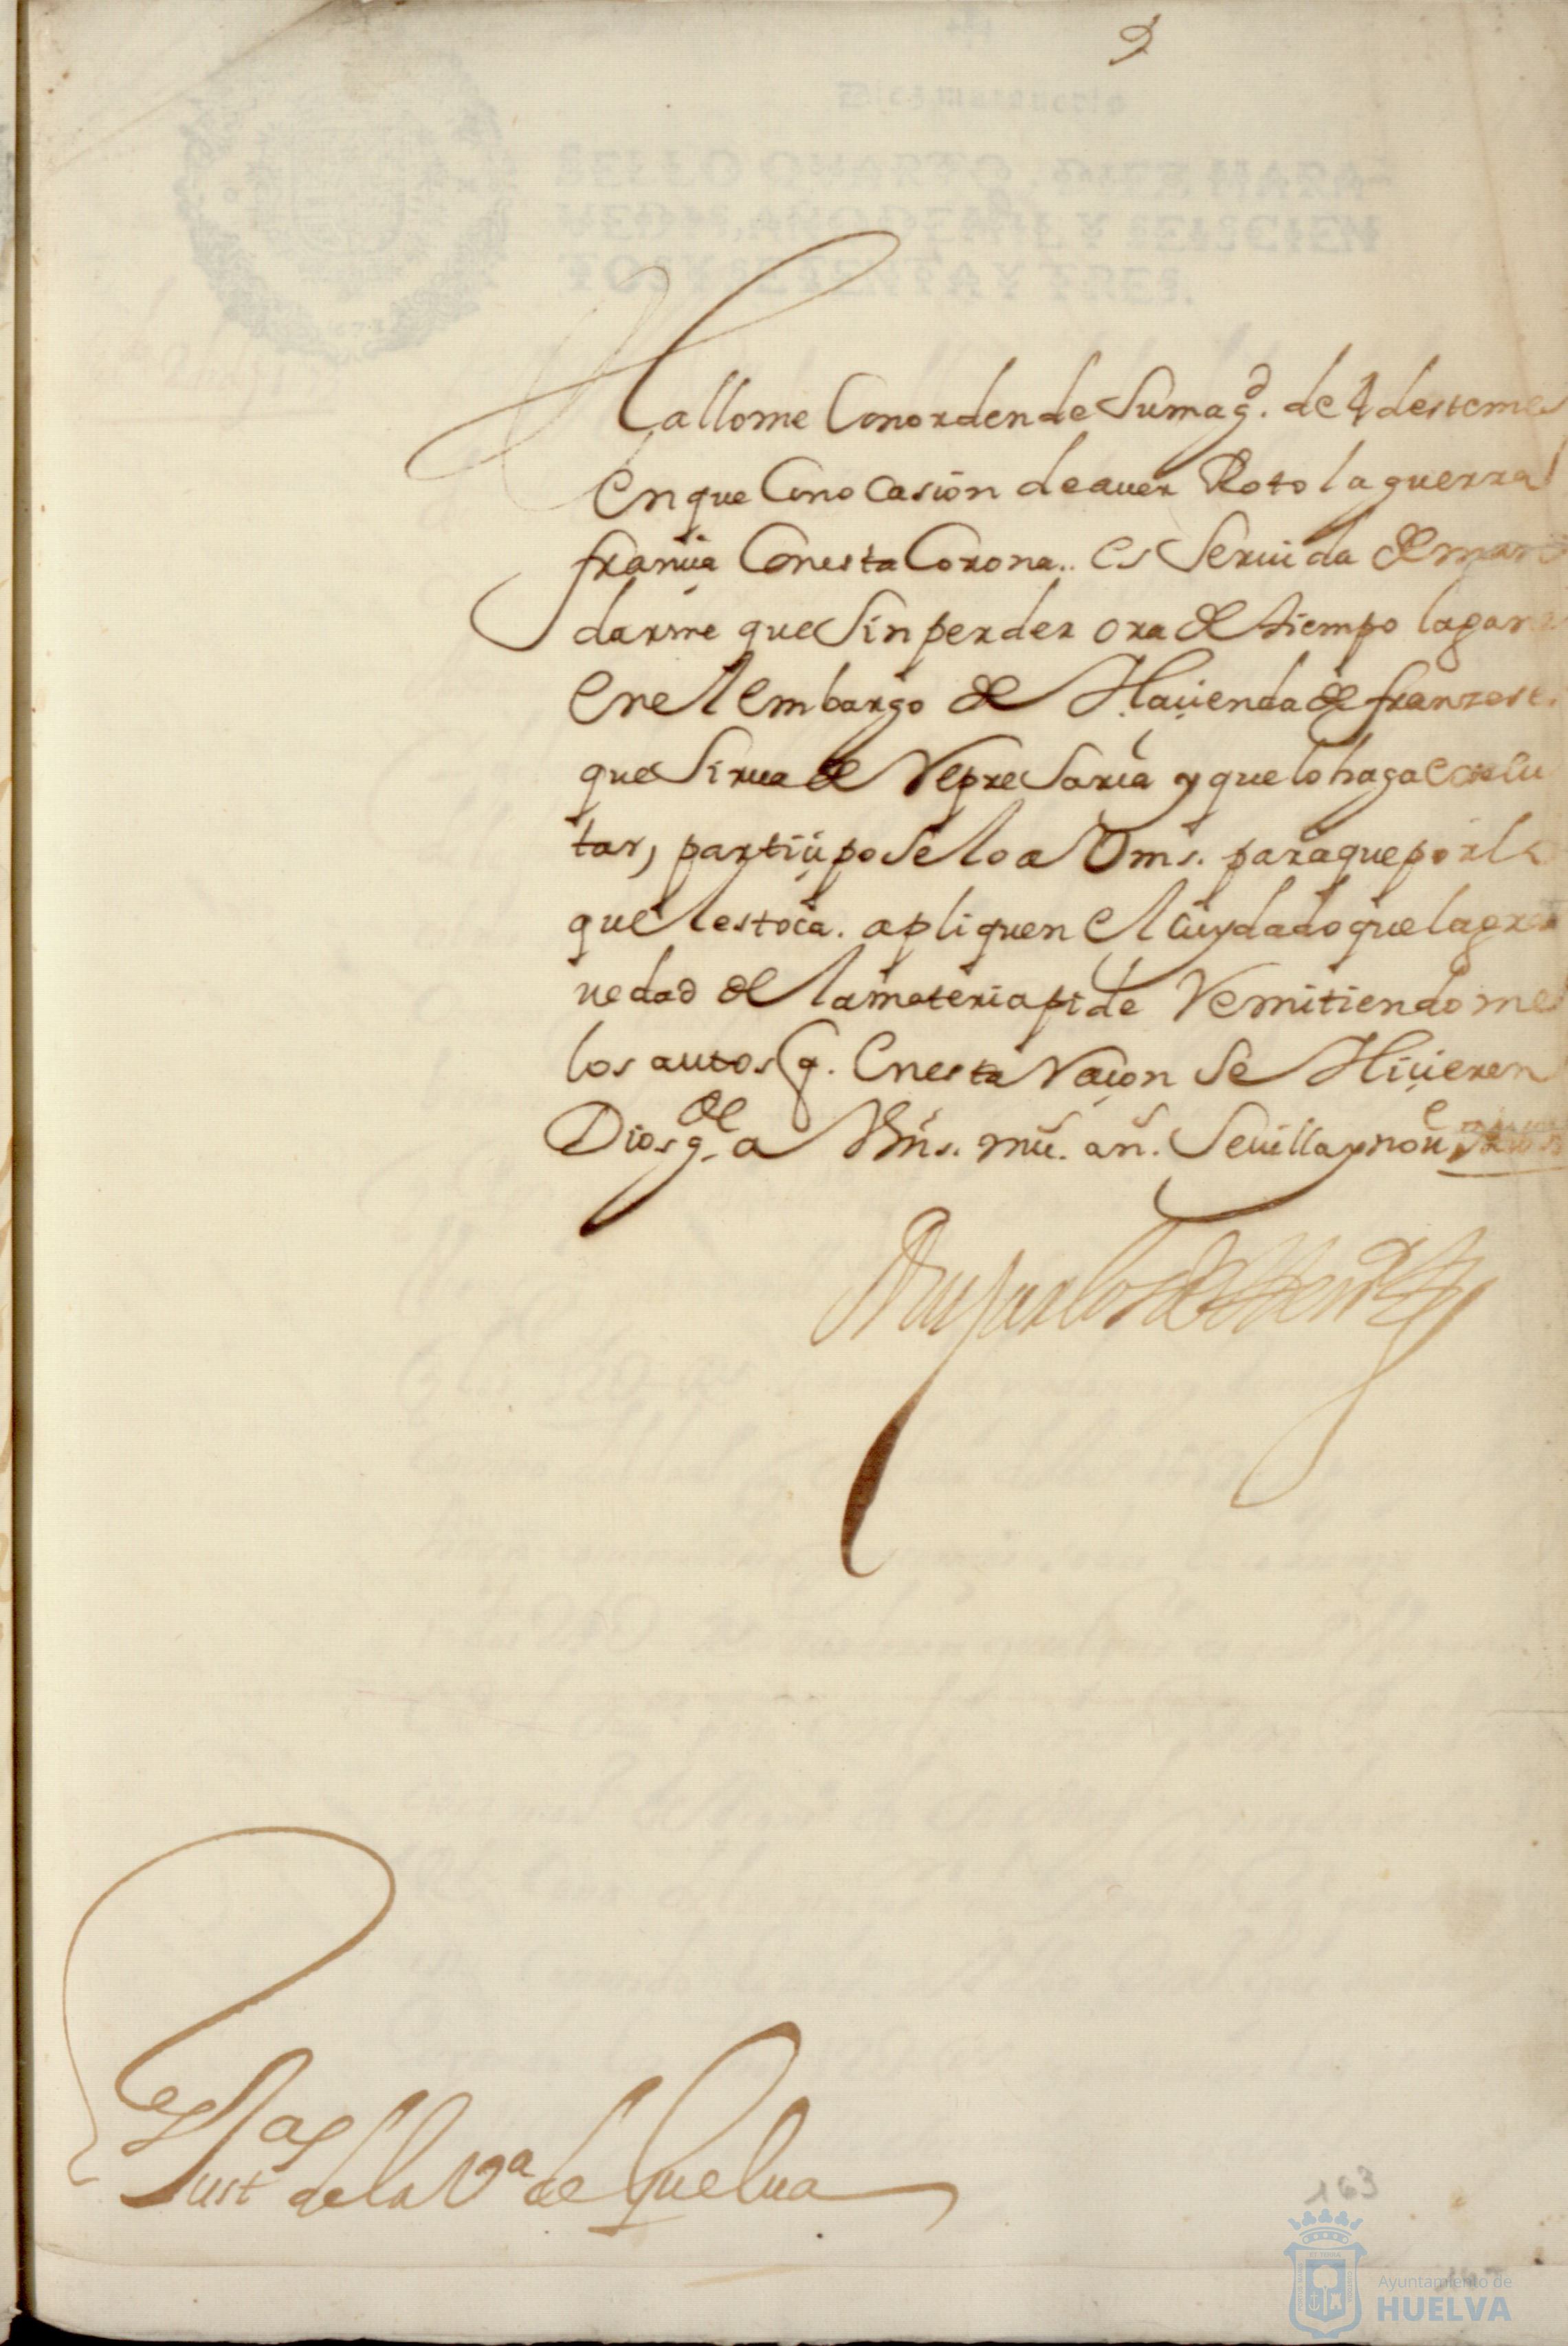 Hallome Con orden de Su mag.d de 4 deste mes
En que Con ocasion de auer Roto la guerra
françia Con esta Corona.. es Seruida de man
darme que Sin perder ora de tiempo
En el embargo de Haçienda de franzeses
que Sirua de Represaria y que lo haga execu
tar, partiçiposelo a Vms. para que por lo
que les toca. apliquen el cuydado que la gra
uedad de la materia pide Remitiendome
los autos q. En esta Raçon se Hiçieren
Dios g.de a Vms. mu.s an.s Seuilla y nou.e
Just.as de la V.a de Guelua
163
Ayuntamiento de
HUELVA